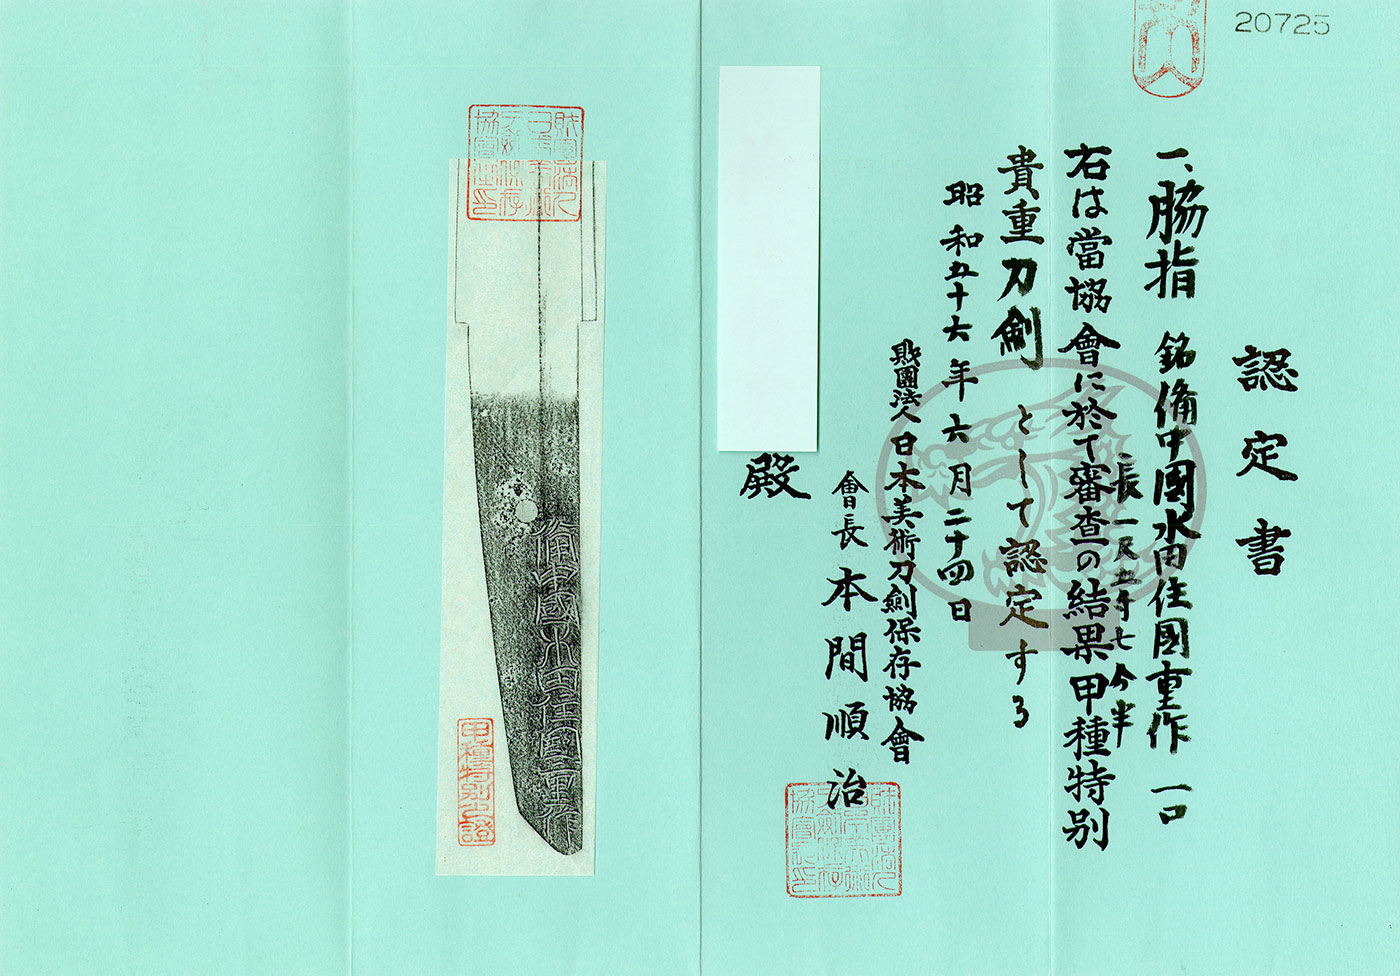 20725
認定書
一、脇指 銘 備中國水田住國重作 一口
長一尺五寸七分半
右は當協會に於て審査の結果甲種特別
貴重刀劍として認定する
昭和五十六年六月二十四日
財團法人日本美術刀劍保存協會
會長 本間順治
殿
備中國水田住國重作
甲種特別之證